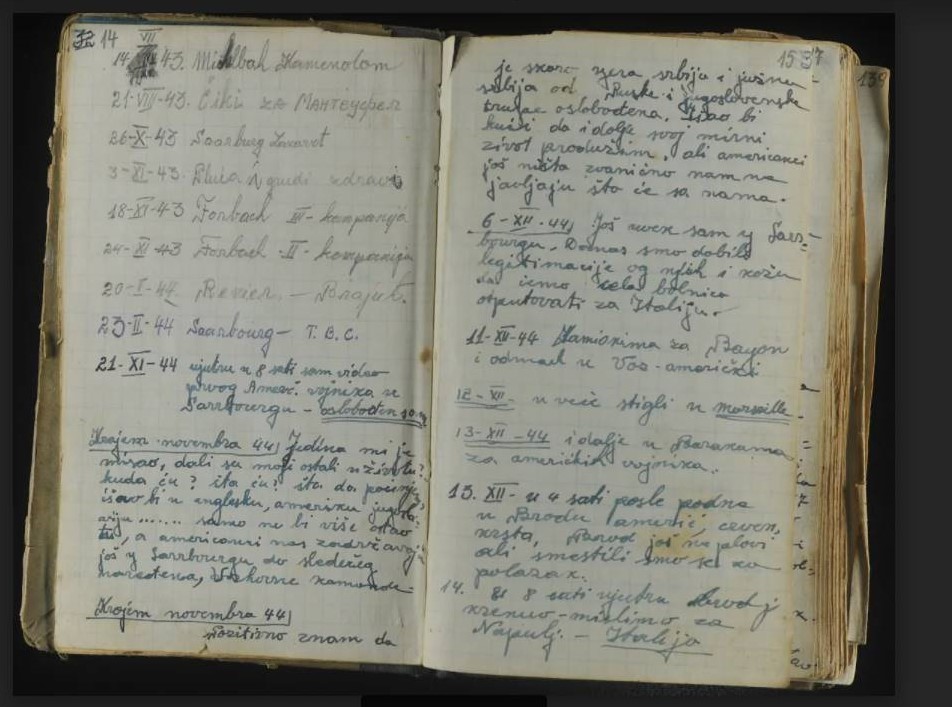 14
14 VII 43. Mühlbah Kamenolom
21-VIII-43. Čiki za Мантеуфел
26-X-43 Saarburg Lazaret
3-XI-43. Pluća i grudi zdravi
18-XI-43 Forbach III-kompanija
24-XI-43 Forbach -II- kompanija
20-I-44 Revier. -
23-II-44 Saarbourg- T.B.C.
21-XI-44 ujutru u 8 sati sam video
prvog Amer. vojnika u
Sarrbourgu - osloboden sam
Krajem novembra 44 Jedina mi je
misao, dali su moji ostali u životu?
kuda ću? šta ću? šta da počinjem?
išao bi u englesku, ameriku jugosla-
viju ....... samo ne bi više ostao
tu, a americanci nas zadržavaju
još u Sarrbourgu do sledećeg
naređenja,
Krajem novembra 44
Pozitivno znam da
15 37
je skoro cela srbija i južna
srbija od Ruske i jugoslovenske
trupe oslobođena. Išao bi
kući da i dolje svoj mirni
život produžim, ali americanci
još ništa zvanično nam ne
javljaju šta će sa nama.
6-XII-44 Još uvek sam u Sarr-
bourgu. Danas smo dobili
legitimacije og njih i kažu
da ćemo cela bolnica
otputovati za Italiju.
11-XII-44 Kamionima za Bayon
i odmah u Voz-američki
12-XII- u veče stigli u marseille
13-XII-44 i dalje u Barakama
za američkih vojnika.
13. XII- u 4 sati posle podne
u Brodu americ, crven,
krsta, Brod još ne plovi
ali smestili smo se za
polazak.
14. u 8 sati ujutru Brod j
krenuo-mislimo za
Napulj. - Italija
139